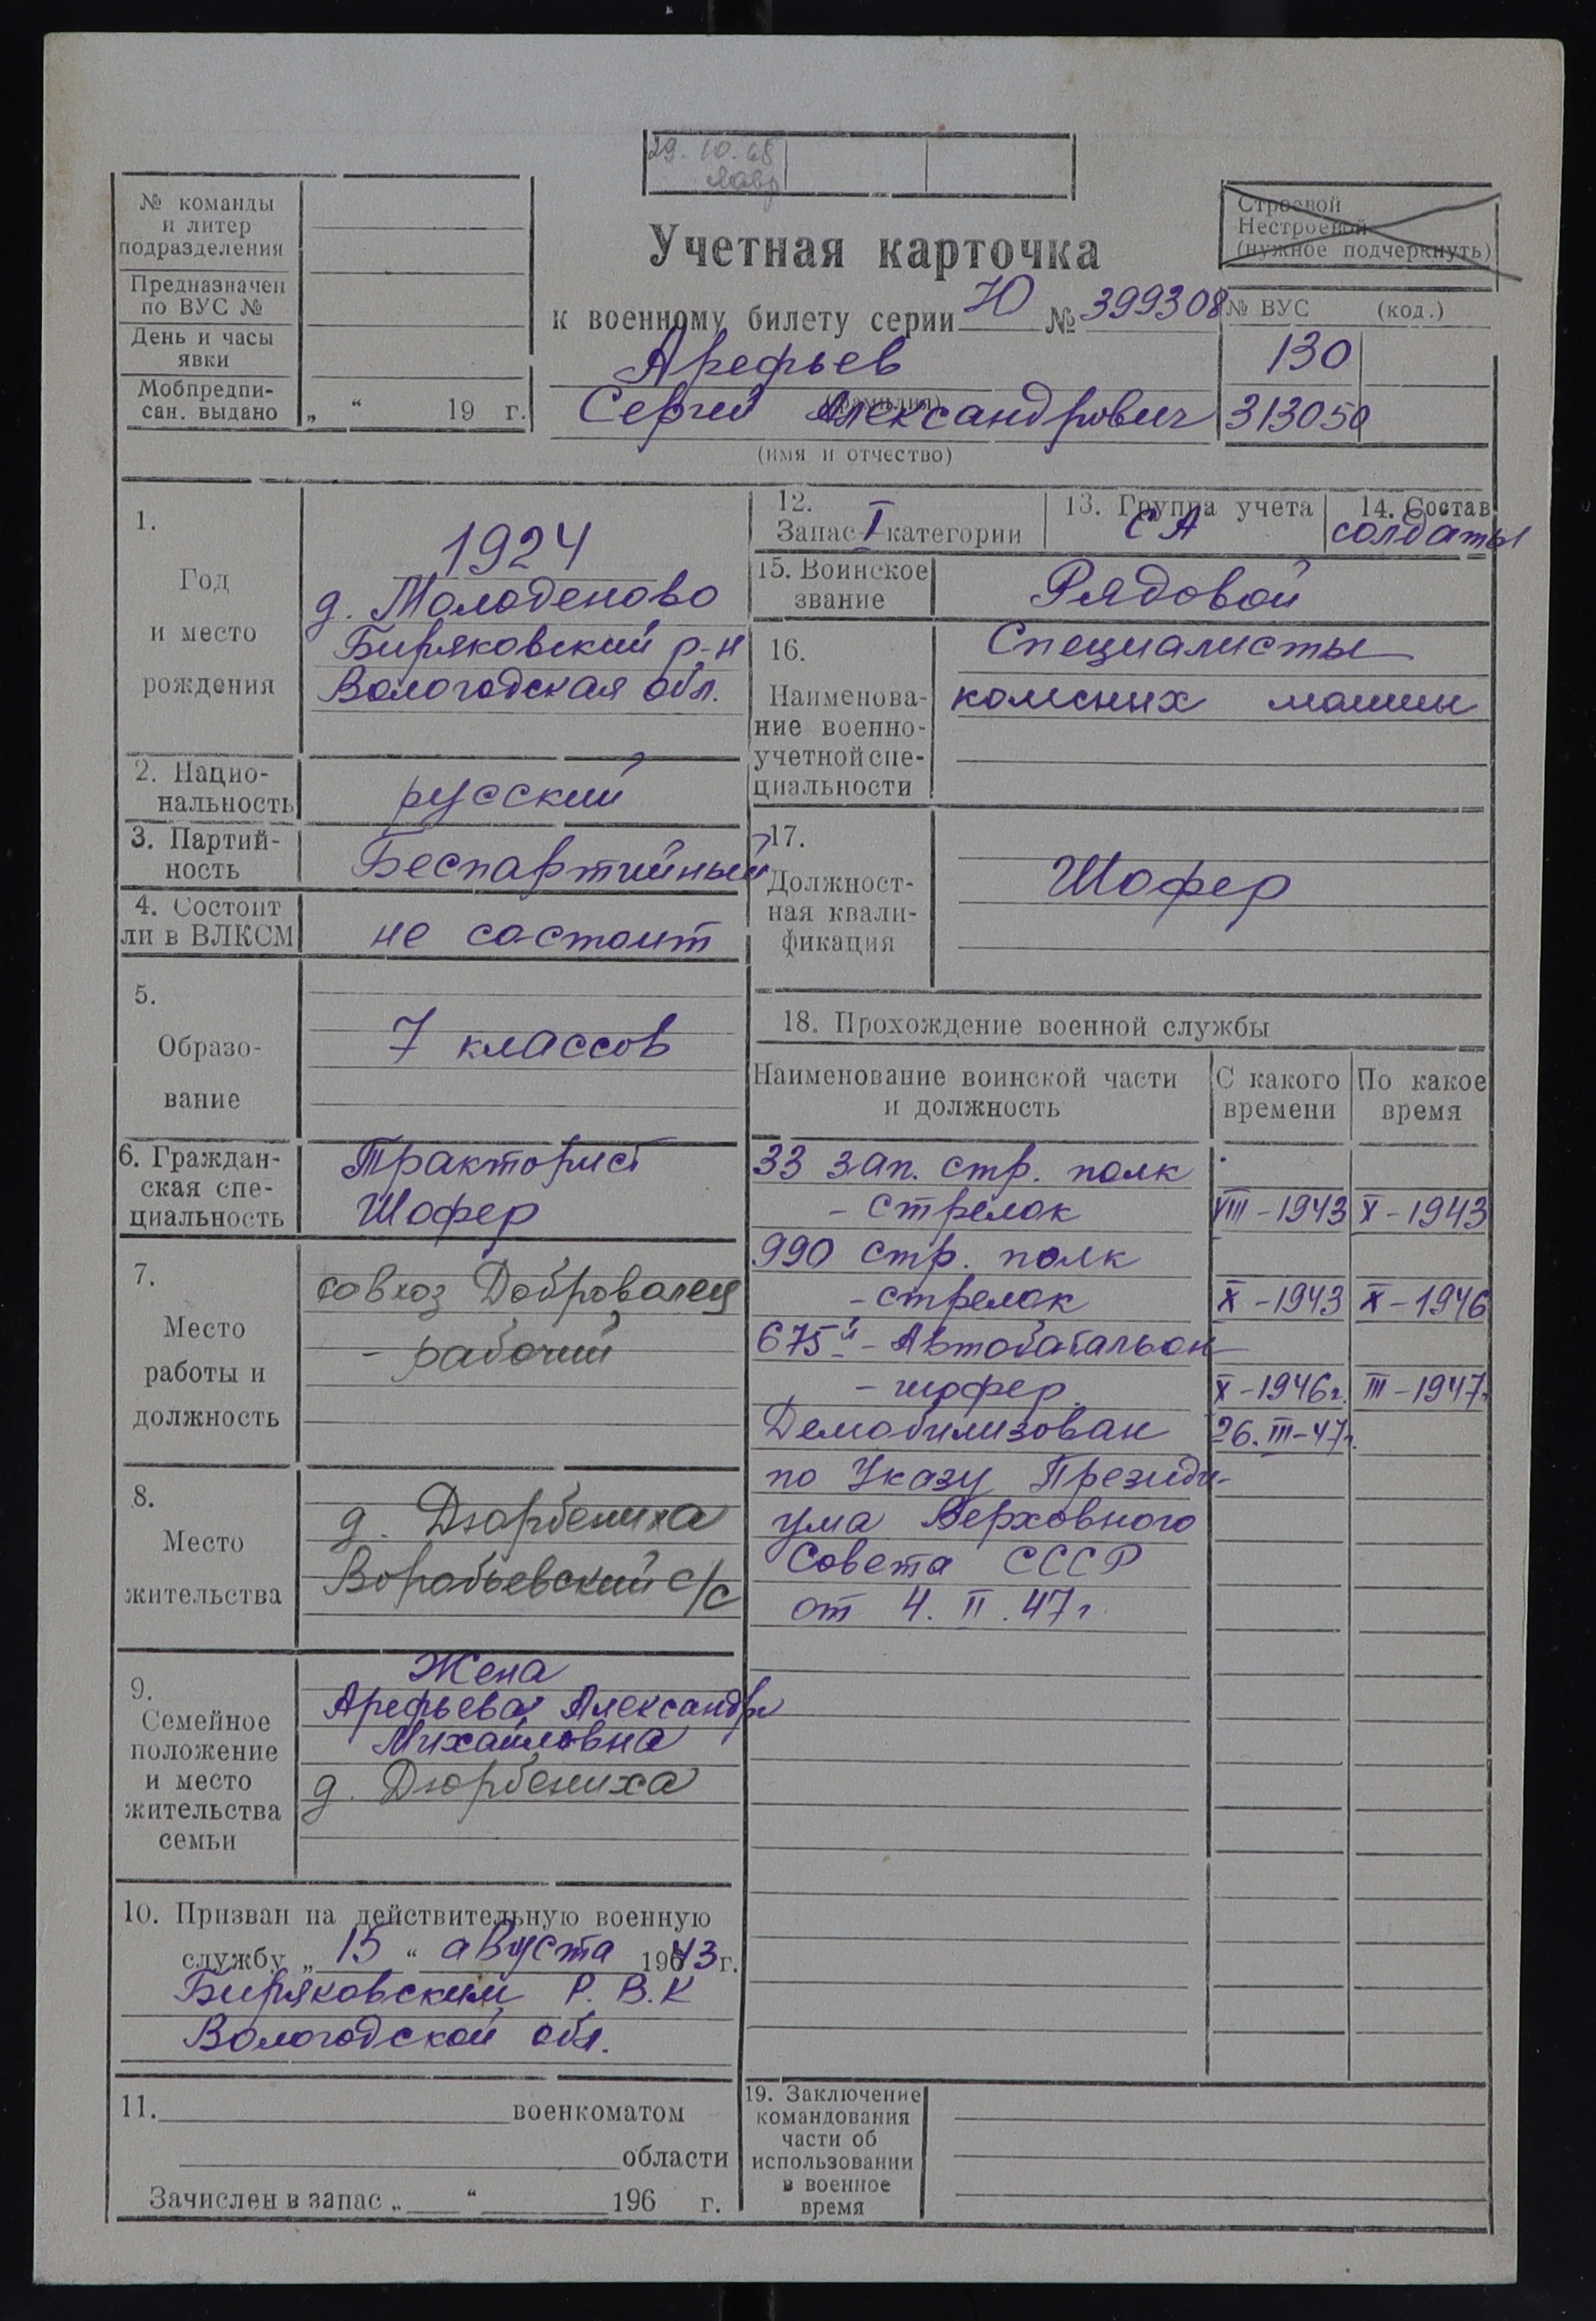 29.10.68
№ команды
и литер
подразделения
Предназначен
по ВУС №
День и часы
явки
Мобпредпи-
сан. выдано
„ “ 19 г.
Учетная карточка
к военному билету серии Ю № 399308
Арефьев
(фамилия)
Сергей Александрович
(имя и отчество)
Строевой
Нестроевой
(нужное подчеркнуть)
№ ВУС (код.)
130
313050
1.
Год
и место
рождения
1924
д. Молоденово
Биряковский р-н
Вологодская обл.
2. Нацио-
нальность
русский
3. Партий-
ность
Беспартийный
4. Состоит
ли в ВЛКСМ
не состоит
5.
Образо-
вание
7 классов
6. Граждан-
ская спе-
циальность
Тракторист
Шофер
7.
Место
работы и
должность
совхоз Доброволец
- рабочий
8.
Место
жительства
д. Дюрбениха
Воробьевский с/с
9.
Семейное
положение
и место
жительства
семьи
Жена
Арефьева Александра
Михайловна
д. Дюрбениха
10. Призван на действительную военную
службу „ 15 “ августа 1943 г.
Биряковским Р.В.К
Вологодской обл.
11. военкоматом
области
Зачислен в запас „ “ 196 г.
12.
Запас I категории
13. Группа учета
СА
14. Состав
солдаты
15. Воинское
звание
Рядовой
16.
Наименова-
ние военно-
учетной спе-
циальности
Специалисты
колесных машин
17.
Должност-
ная квали-
фикация
Шофер
18. Прохождение военной службы
Наименование воинской части
и должность
С какого
времени
По какое
время
33 зап. стр. полк
- стрелок VIII-1943 X-1943
990 стр. полк
- стрелок X-1943 X-1946
675й - Автобатальон
- шофер X-1946г. III-1947г.
Демобилизован 26.III-47г.
по Указу Президи-
ума Верховного
Совета СССР
от 4.II.47г.
19. Заключение
командования
части об
использовании
в военное
время